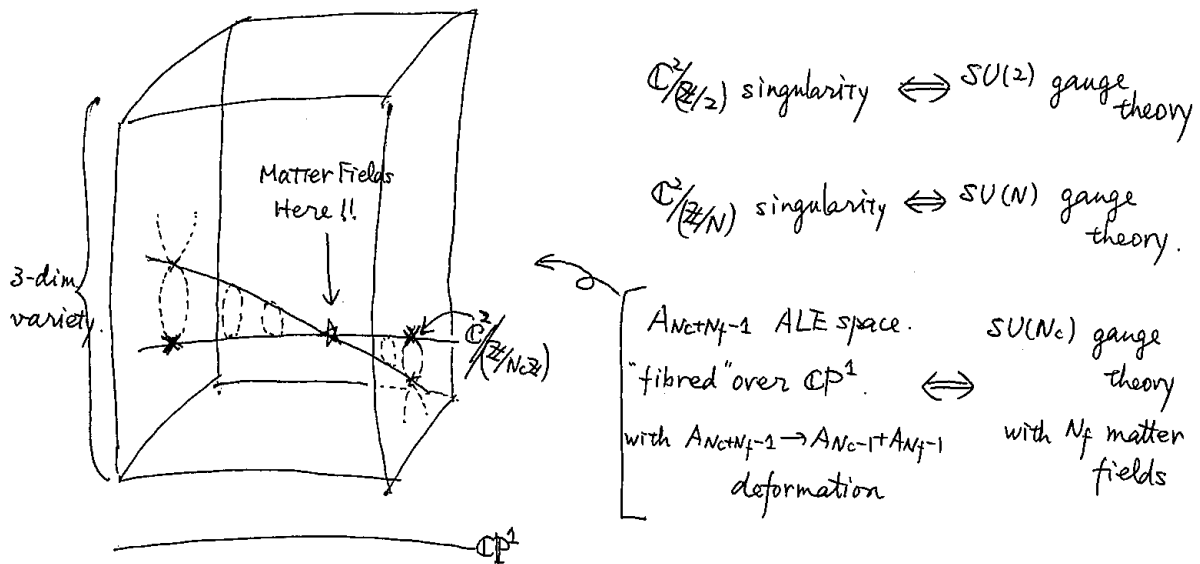 Matter Fields
Here !!
3-dim
variety.
ℂ²/(ℤ/Ncℤ)
ℂP¹
ℂ²/(ℤ/2) singularity ⇔ SU(2) gauge
theory
ℂ²/(ℤ/N) singularity ⇔ SU(N) gauge
theory.
A_{Nc+Nf-1} ALE space.
"fibred" over ℂP¹.
with A_{Nc+Nf-1} → A_{Nc-1} + A_{Nf-1}
deformation
⇔
SU(Nc) gauge
theory
with Nf matter
fields